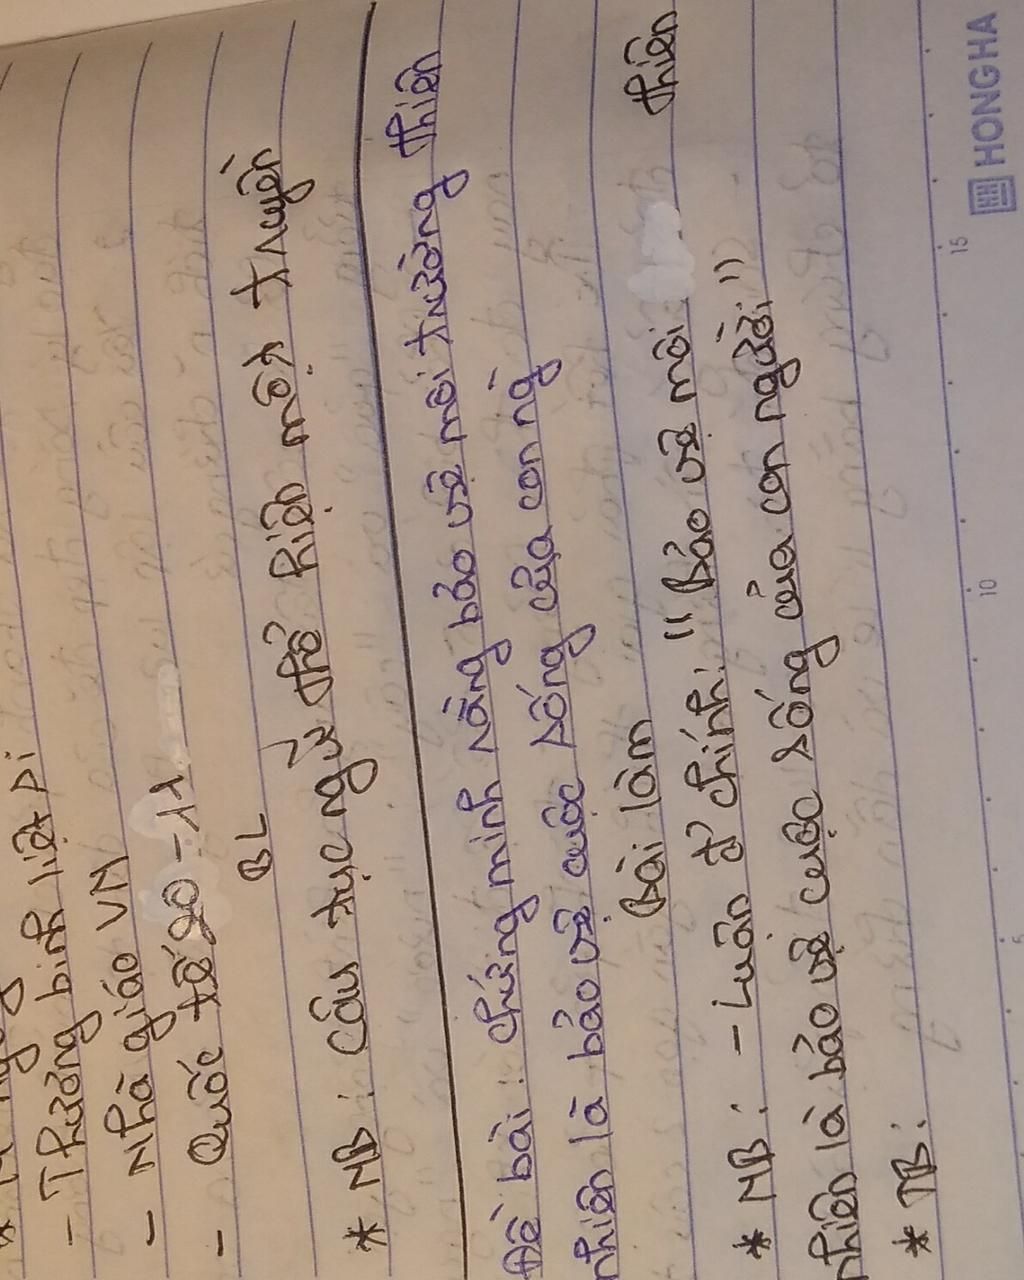 - Thương binh liệt Dĩ
- Nhà giáo VN
- Quốc tế 20-11
BL
* MB: Câu tục ngữ thể hiện một truyền
Đề bài: Chứng minh rằng bảo vệ môi trường thiên
nhiên là bảo vệ cuộc sống của con ng
Bài làm
* MB: - Luân đ' chính: "Bảo vệ môi thiên
nhiên là bảo vệ cuộc sống của con người"
* TB:
5 10 15
HONG HA